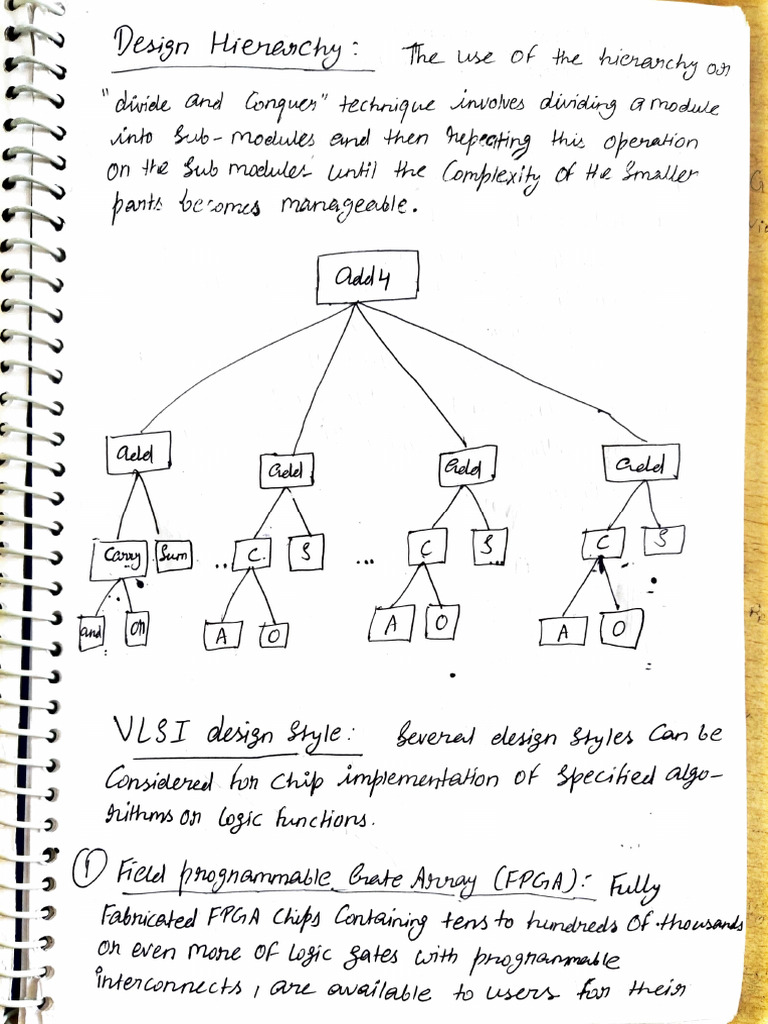 Design Hierarchy: The use of the hierarchy or
"divide and Conquer" technique involves dividing a module
into Sub-modules and then repeating this operation
on the Sub modules until the Complexity of the Smaller
parts becomes manageable.
add4
add add add add
Carry Sum .. C S ... C S ... C S
and or A O A O A O
VLSI design Style: Several design Styles Can be
Considered for Chip implementation of Specified algo-
rithms or Logic functions.
① Field programmable Gate Array (FPGA): Fully
Fabricated FPGA Chips Containing tens to hundreds of thousands
or even more of Logic gates with programmable
interconnects, are available to users for their